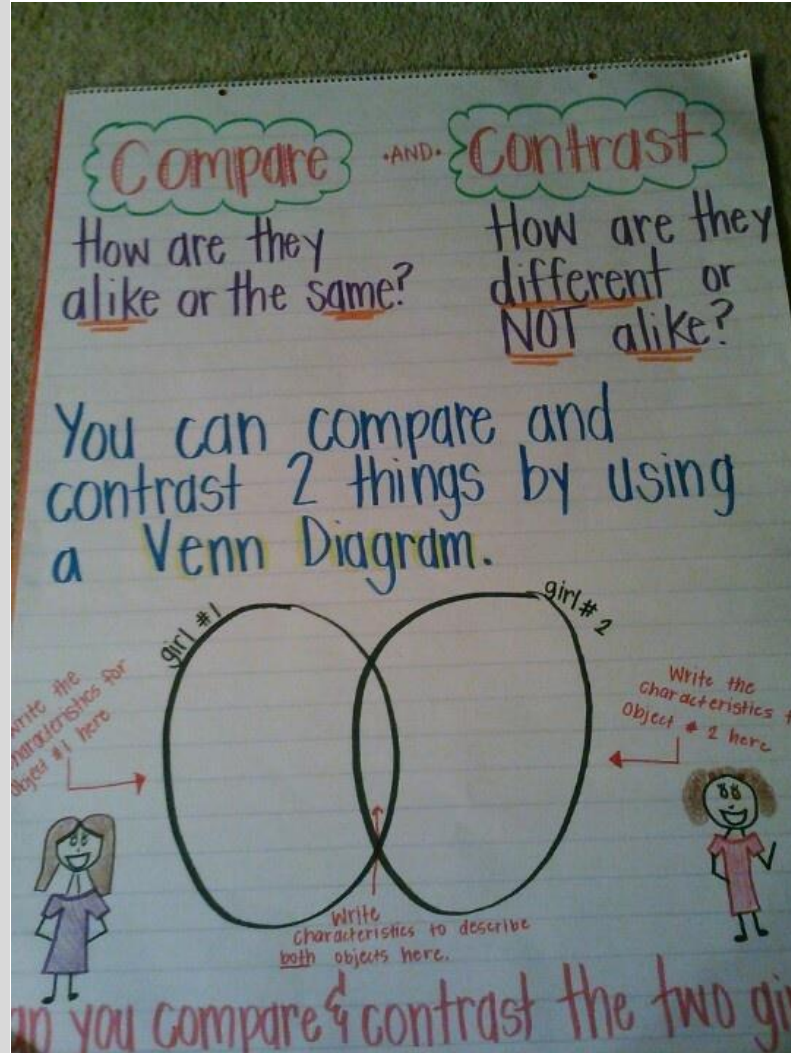 Compare •AND• Contrast
How are they
alike or the same?
How are they
different or
NOT alike?
You can compare and
contrast 2 things by using
a Venn Diagram.
girl #1
girl # 2
write the
characteristics for
object #1 here
Write the
characteristics
object # 2 here
Write
characteristics to describe
both objects here.
you compare & contrast the two